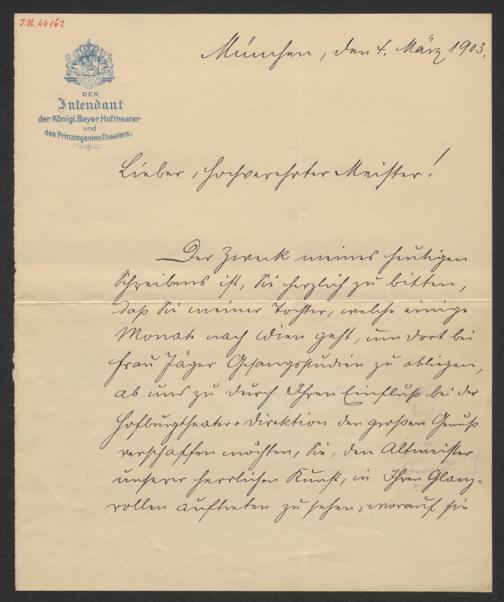 I.N. 44162
München, den 4. März 1903.
DER
Intendant
der Königl. Bayer. Hoftheater
und
des Prinzregenten-Theaters.
Lieber, hochverehrter Meister!
Der Zweck meines heutigen
Schreibens ist, Sie herzlich zu bitten,
daß Sie meiner Tochter, welche einige
Monate nach Wien geht, um dort bei
Frau Jäger Gesangsstudien zu obliegen,
ab und zu durch Ihren Einfluß bei der
Hofburgtheater-Direktion den großen Genuß
verschaffen möchten, Sie, den Altmeister
unserer herrlichen Kunst, in Ihren Glanz-
rollen auftreten zu sehen, worauf sie